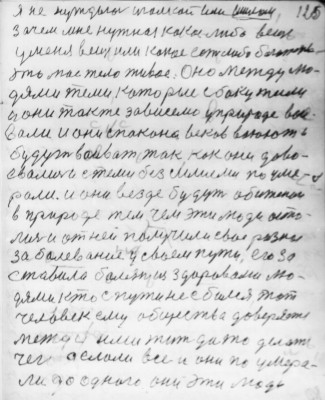 я не нуждаюс иголкой или шилом, 125
зачем мне нужная кака либо вещ
у меня вещ или какое сотхлибо богатство
это мое тело живое. Оно между лю-
дями теми, которые с боку жили
и они также зависемо в природе вое
вали и они спакона веков воюють
будут воеват, так как они дово-
евалис и с теми без силиями по уме-
рали. и они везде будут обиженои
в природе тем чем эти люди ото-
и от ней получили свои розные
заболевание у своем пути, его за
ставила болящих здоровоми лю-
дями кто с пути не сбился тот
человек ему общества доверяет
между ими тит дато делает
чег делали все и они по умера-
ли до одного они эти люди